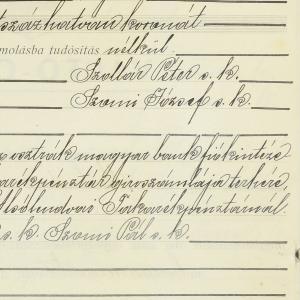 százhatvan koronát
molásba tudósítás nélkül.
Szollár Péter s. k.
Szomi József s. k.
osztrák magyar bank fiókintéze
arékpénztár giroszámlája terhére,
Alsólendvai Takarékpénztárnál.
s. k. Szomi Pál s. k.